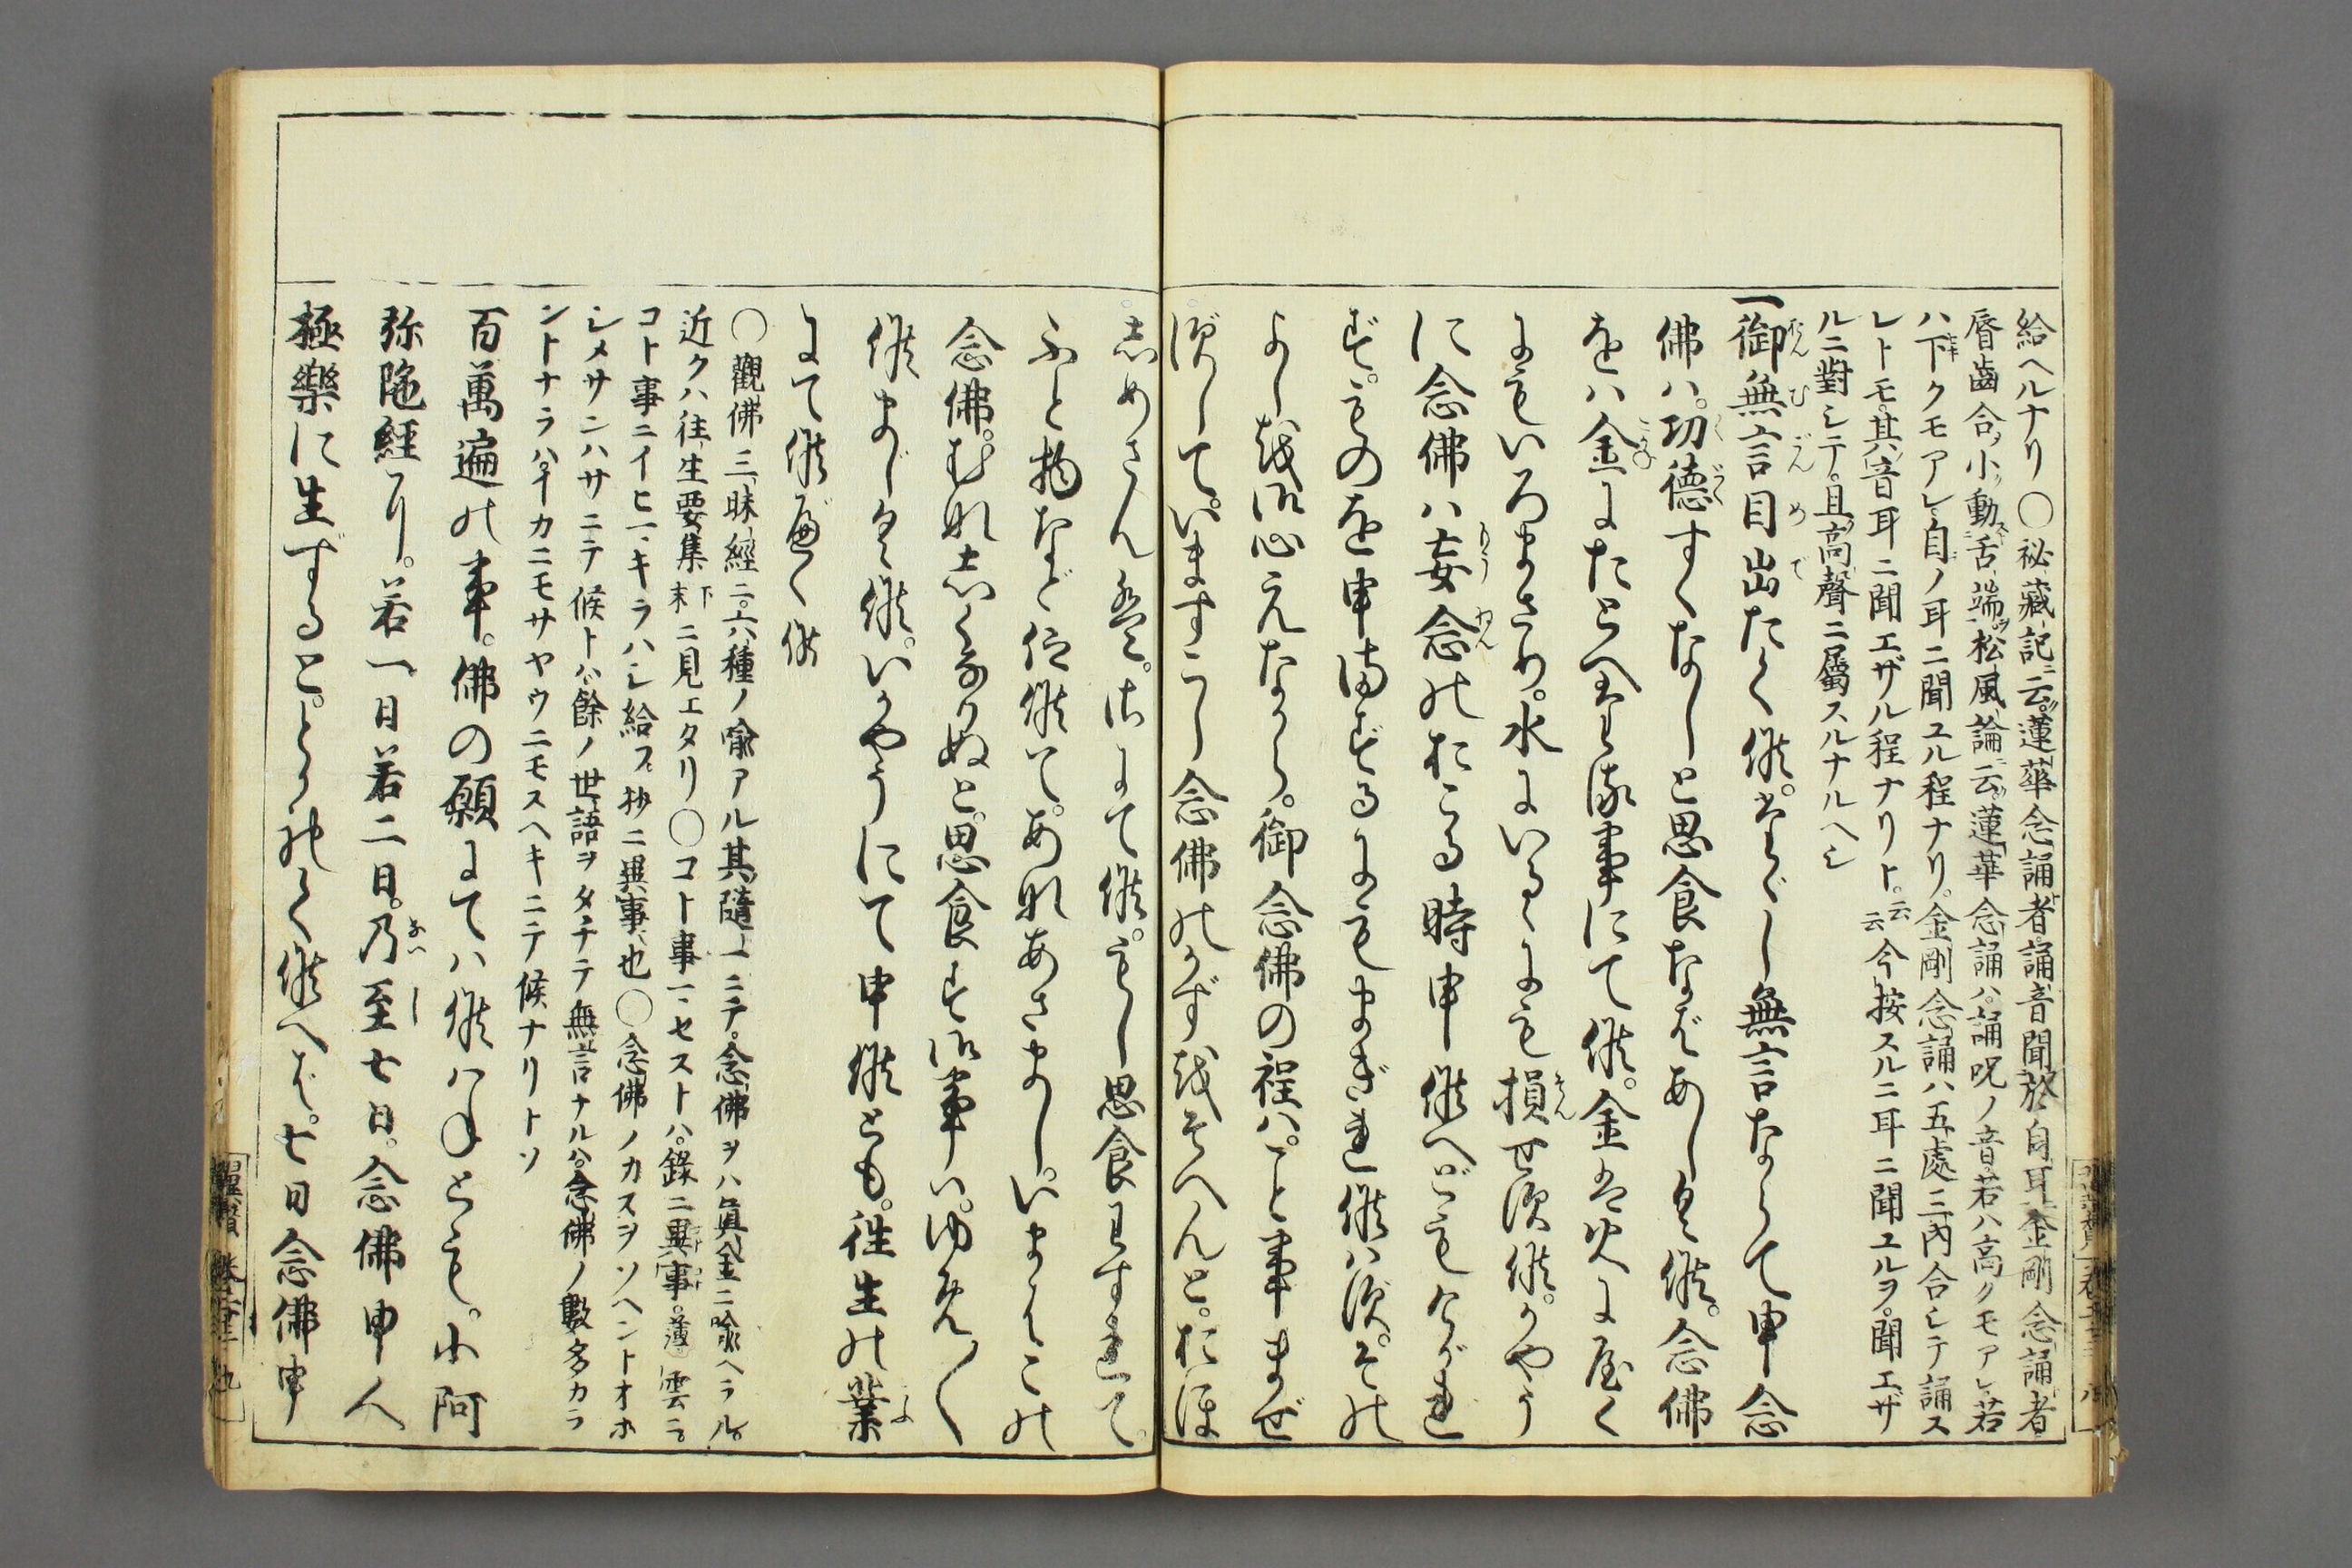 給ヘルナリ〇祕藏記ニ云。蓮華念誦者。誦音聞於自耳。金剛念誦者
脣齒合。小動舌端。松風論ニ云。蓮華念誦ハ。誦呪ノ音。若ハ高クモアレ。若
ハ下クモアレ。自ノ耳ニ聞ユル程ナリ。金剛念誦ハ五處三內合シテ誦ス
レトモ。其音耳ニ聞エザル程ナリト。云云今按スルニ耳ニ聞ユルヲ。聞エザ
ルニ對シテ。且高聲ニ屬スルナルヘシ
一御無言目出たく候。たゞし無言ならて申念
佛ハ。功德すくなしと思食なばあしく候。念佛
をハ金にたとへたる事にて候。金は火に屋く
にもいろまさり。水にいるゝにも損せす候。かやう
に念佛ハ妄念のおこる時申候へどもけがれ
ず。ものを申ませするにもまぎれ候ハす。その
よし御心えなから。御念佛の程ハ。こと事まぜ
すして。いますこし念佛のかずをそへんと。おほ
しめさんは。さにて候。もし思食わすれて。
ふと物など仰候て。あなあさまし。いまはこの
念佛。むなしくなりぬと。思食す御事ハ。ゆめ〱
候ましく候。いかやうにて申候とも。往生の業
にて候へく候
〇觀佛三昧經ニ。六種ノ喩アル其隨一ニテ。念佛ヲハ眞金ニ喩ヘラル。
近クハ往生要集下末ニ見エタリ〇コト事一セストハ。錄ニ異事。薄雲ニ。
コト事ニイヒ一キラハシ給フ。抄ニ異事也〇念佛ノカスヲソヘントオホ
シメサンハサニテ候トハ。餘ノ世語ヲタチテ無言ナルハ。念佛ノ數多カラ
ントナラハ。イカニモサヤウニモスヘキニテ候ナリトソ
百萬遍の事。佛の願にてハ候ハねとも。小阿
弥陁經に。若一日若二日。乃至七日。念佛申人
極樂に生ずると。とかれて候へば。七日念佛申